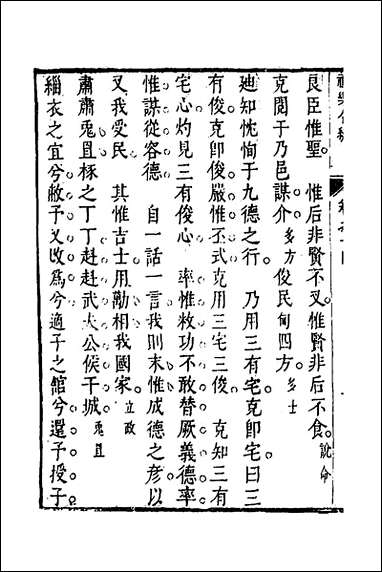 良臣惟聖　惟后非賢不乂惟賢非后不食說命
克閱于乃邑謀介多方俊民甸四方多士
廸知忱恂于九德之行　乃用三有宅克卽宅曰三
有俊克卽俊嚴惟丕式克用三宅三俊　克知三有
宅心灼見三有俊心　率惟敉功不敢替厥義德率
惟謀從容德　自一話一言我則末惟成德之彥以
乂我受民　其惟吉士用勱相我國家立政
肅肅兎罝椓之丁丁赳赳武夫公侯干城兎罝
緇衣之宜兮敝予又改爲兮適子之館兮還予授子